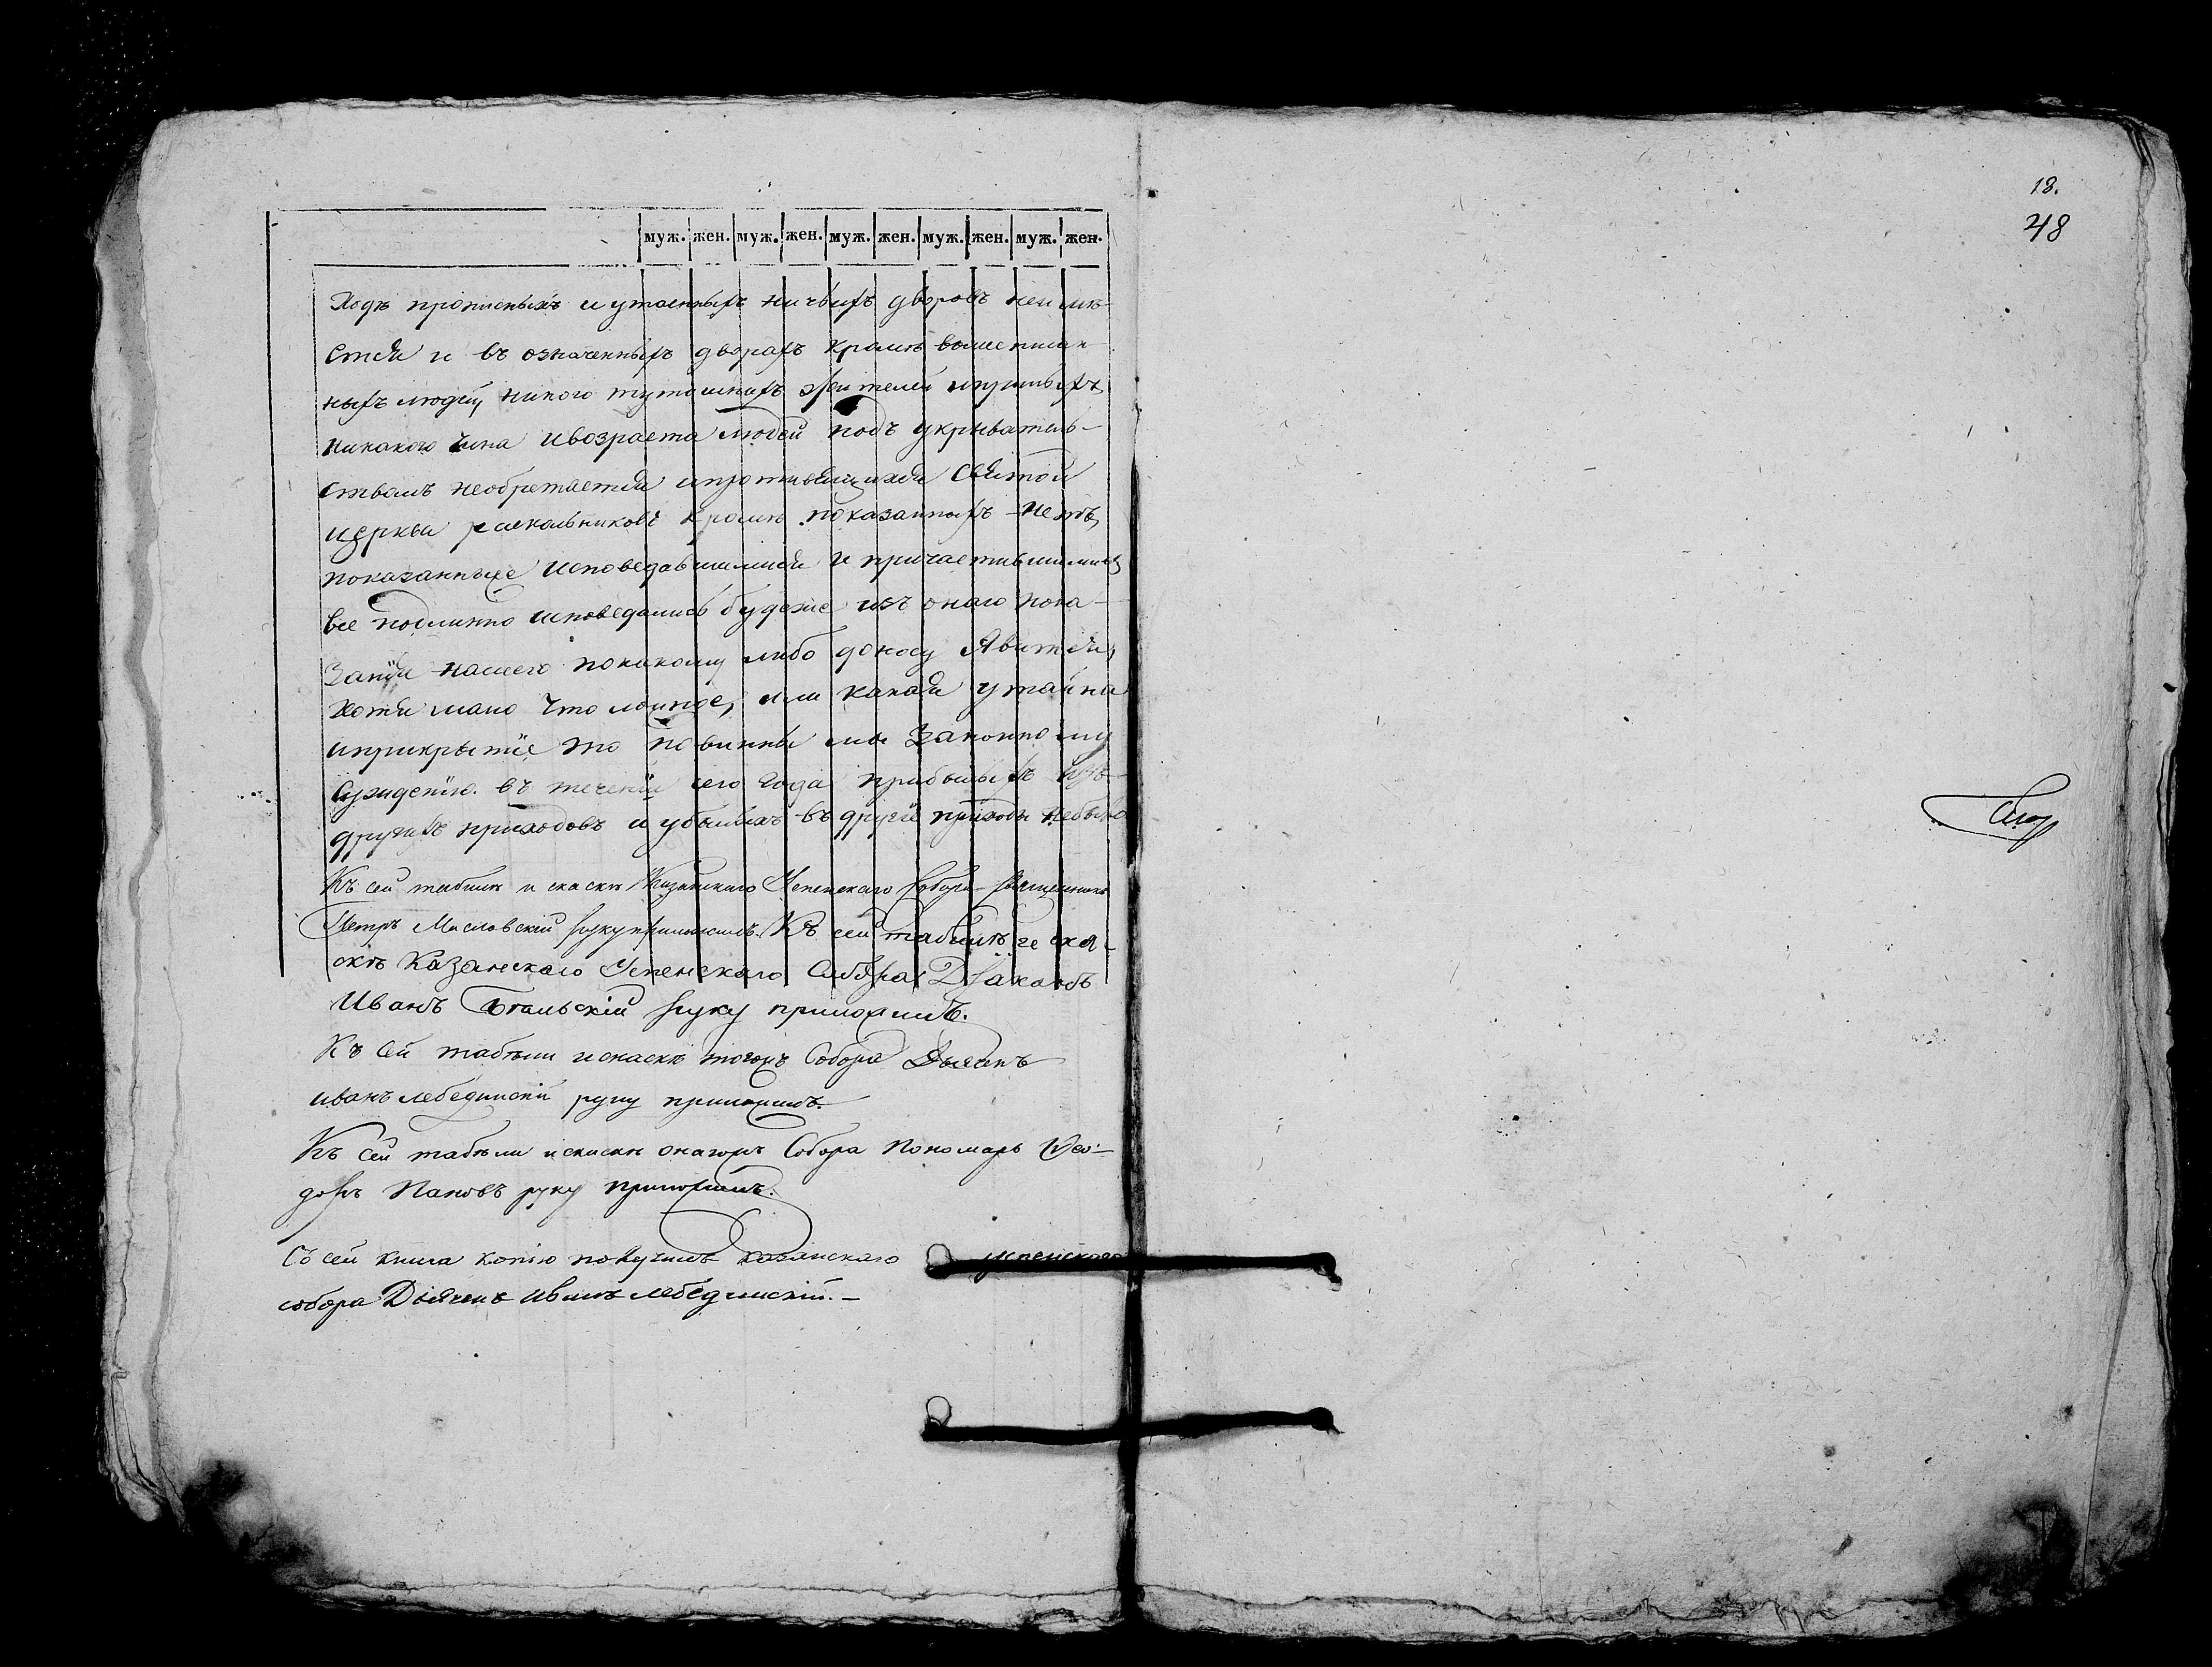 муж. жен. муж. жен. муж. жен. муж. жен. муж. жен.
ходѣ прописныхъ и утаенныхъ ничьихъ дворовъ неимѣ-
ется и въ означенныхъ дворахъ кромѣ вышеписан-
ныхъ людей, никого тутошнихъ жителей ипришлыхъ
никакого чина ивозраста людей подъ укрыватель-
ствомъ необретается ипротивящихся Святой
церкви раскольниковъ кромѣ показанныхъ нетъ,
показанные исповедавшимися и причастившимися
все подлинно исповедались будеже изъ онаго пока-
занїя нашего покакому либо доносу Явится,
хотя мало что ложное, или какая утайка
иприкрытїе то повинны мы Законному
суждению. въ теченїи сего года прибылыхъ изъ
другихъ приходовъ и убылыхъ въ другїе приходы небыло
Къ сей табели и скаскѣ Казанскаго Успенскаго Собора Священникъ
Петръ Масловскій руку приложилъ. Къ сей табели и ска-
скѣ Казанскаго Успенскаго Собора Дїаконъ
Иванъ Бѣльскій руку приложилъ.
Къ сей табѣли искаскѣ тогожъ Собора Дьячекъ
иванъ лебединскій руку приложилъ.
Къ сей табѣли искаскѣ онагожъ Собора Пономарь Фео-
доръ Пановъ руку приложилъ.
Съ сей книги копїю получилъ казанскаго успенскаго
собора Дьячекъ Иванъ лебединскїй. —
18.
48